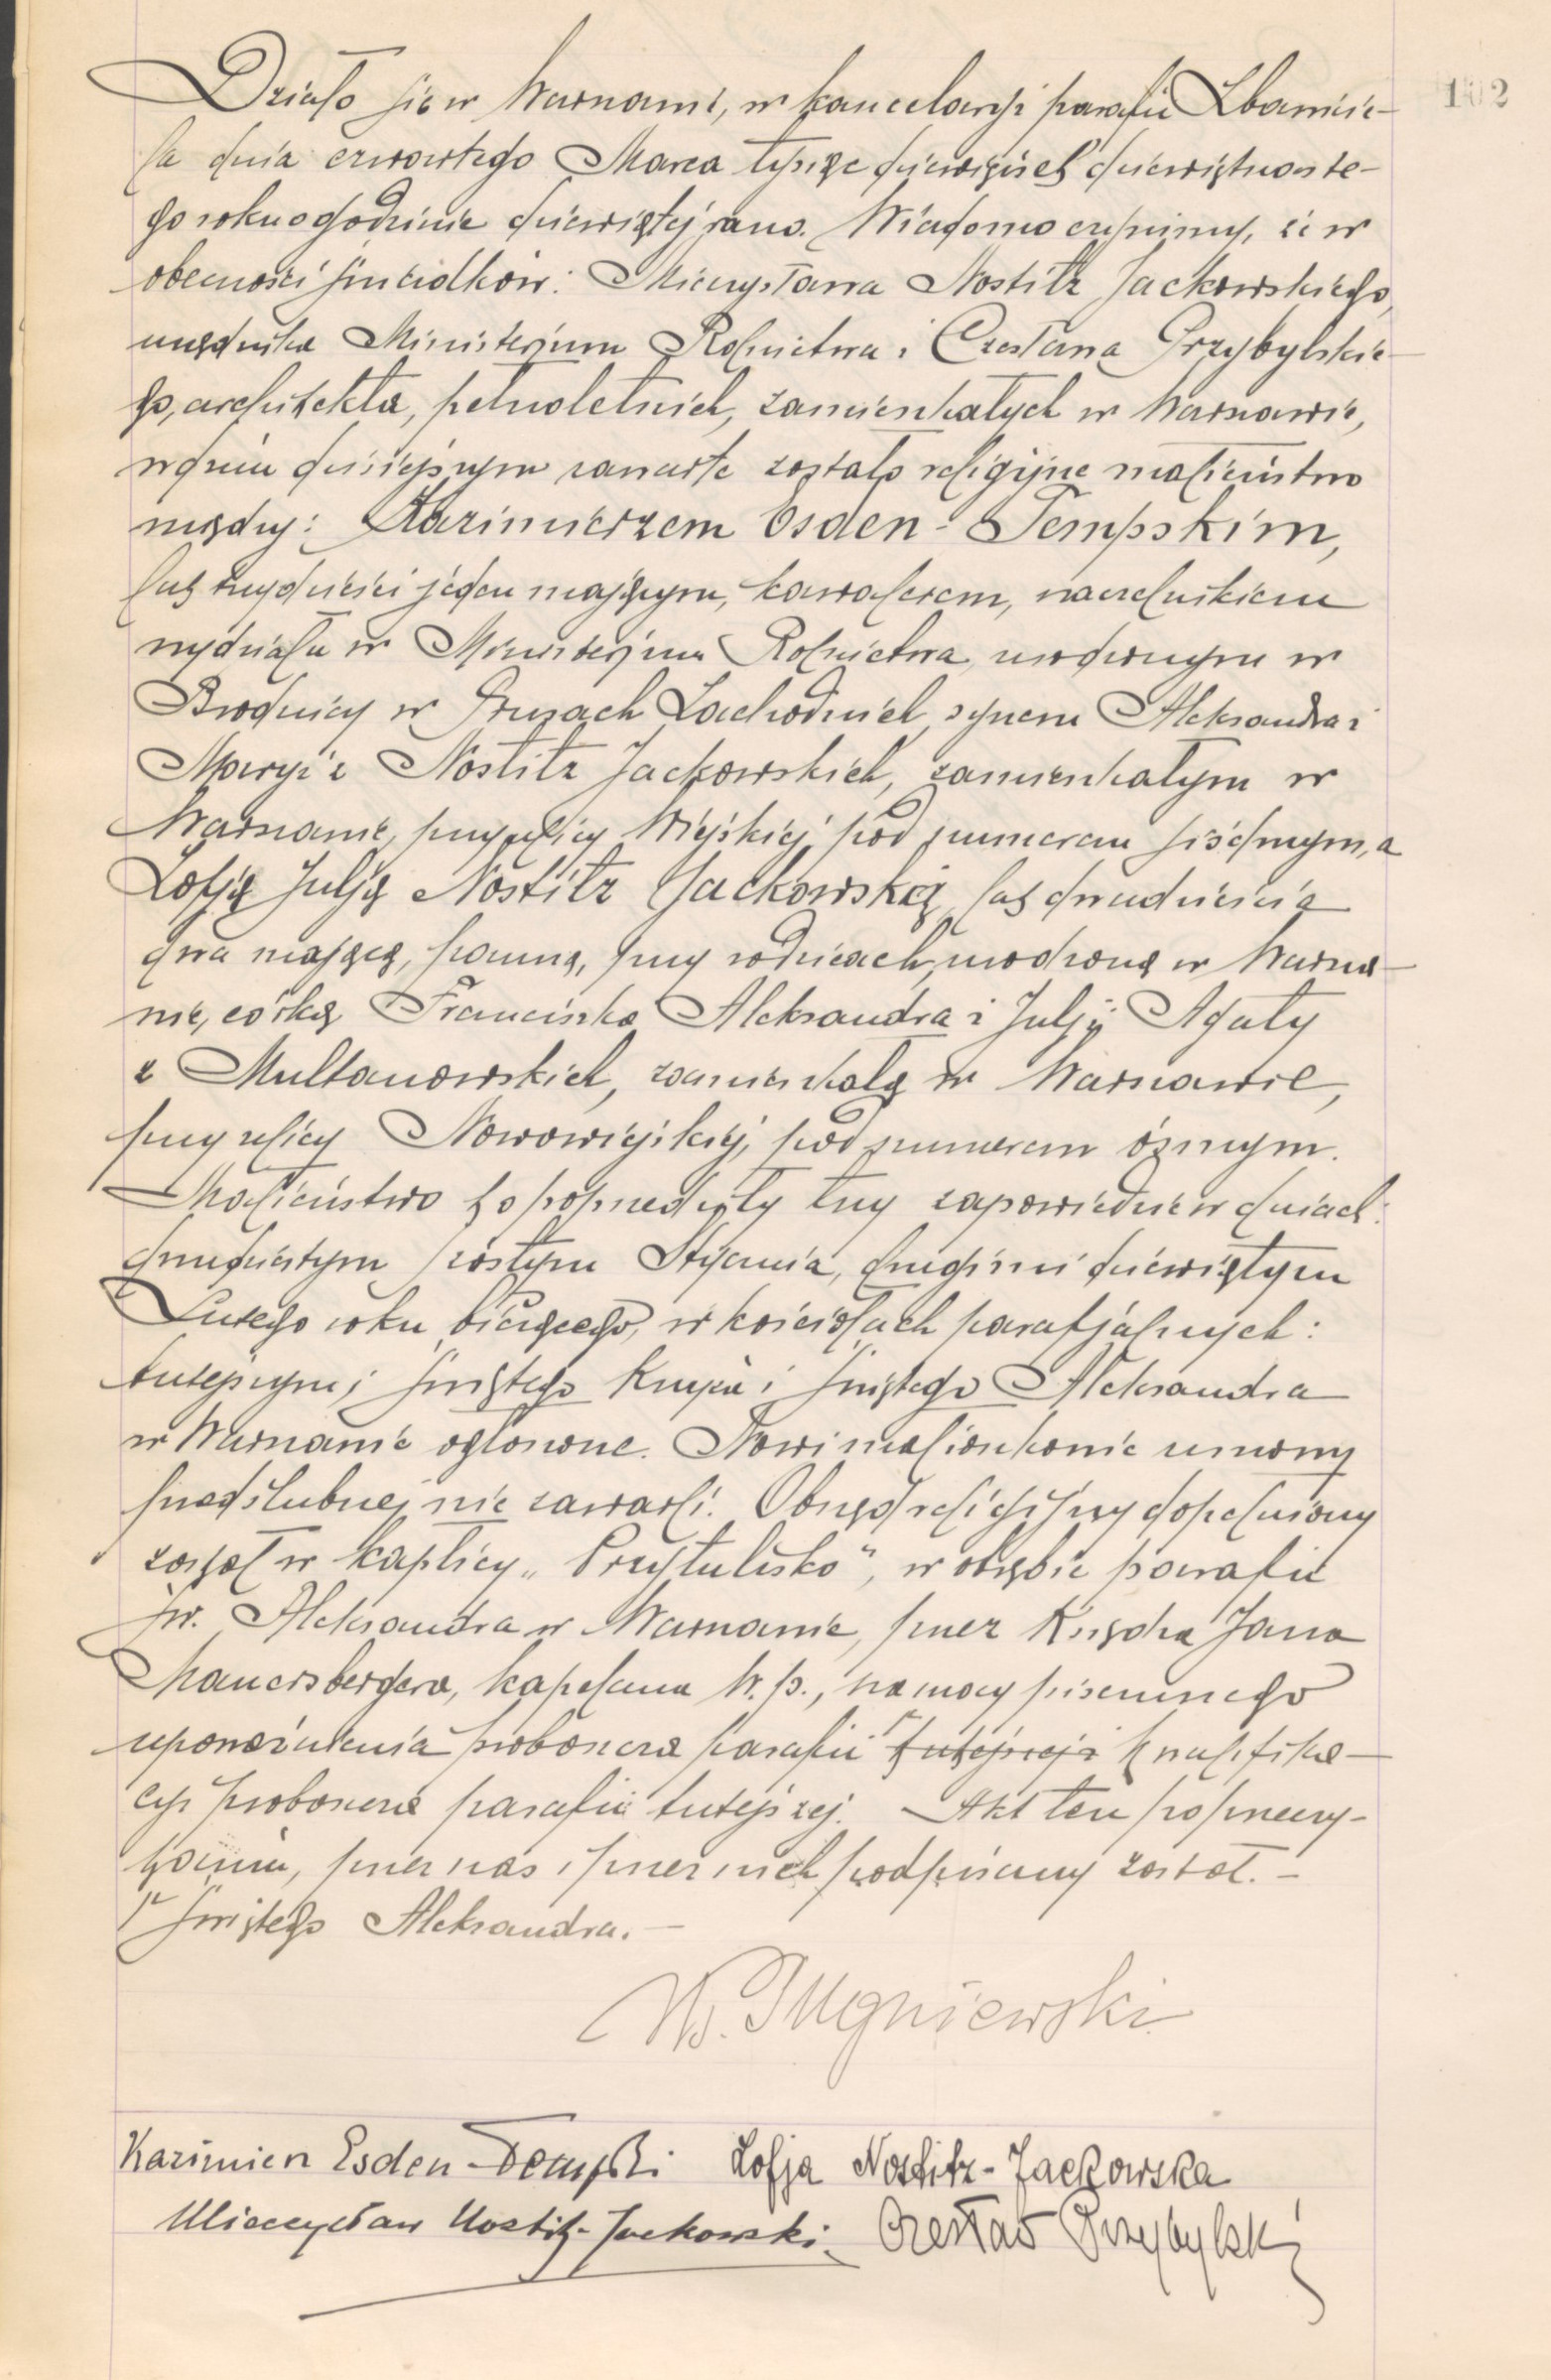 102
Działo się w Warszawie, w kancelaryi parafii Zbawicie-
la dnia czwartego Marca tysiąc dziewięćset dziewiętnaste-
go roku o godzinie dziewiątej rano. Wiadomo czynimy, że w
obecności świadków: Mieczysława Nostitz Jackowskiego,
urzędnika Ministerjum Rolnictwa i Czesława Przybylskie-
go, architekta, pełnoletnich, zamieszkałych w Warszawie,
w dniu dzisiejszym zawarte zostało religijne małżeństwo
między: Kazimierzem Esden-Tempskim,
lat trzydzieści jeden mającym, kawalerem, naczelnikiem
wydziału w Ministerjum Rolnictwa, urodzonym w
Brodnicy w Prusach Zachodnich, synem Aleksandra i
Maryi z Nostitz Jackowskich, zamieszkałym w
Warszawie, przy ulicy Wiejskiej pod numerem siódmym, a
Zofją Julją Nostitz Jackowską, lat dwadzieścia
dwa mającą, panną, przy rodzicach, urodzoną w Warsza-
wie, córką Franciszka Aleksandra i Julji Agaty
z Multanowskich, zamieszkałą w Warszawie,
przy ulicy Nowowiejskiej, pod numerem ósmym.
Małżeństwo to poprzedziły trzy zapowiedzie w dniach:
dwudziestym szóstym Stycznia, drugim i dziewiątym
Lutego roku bieżącego, w kościołach parafjalnych:
tutejszym, Świętego Krzyża i Świętego Aleksandra
w Warszawie ogłoszone. Nowi małżonkowie umowy
przedślubnej nie zawarli. Obrzęd religijny dopełniony
został w kaplicy „Przytulisko", w obrębie parafii
św. Aleksandra w Warszawie, przez Księdza Jana
Mauersbergera, kapelana W.p., na mocy pisemnego
upoważnienia proboszcza parafii tutejszej i kwalifika-
cyi proboszcza parafii tutejszej. Akt ten po przeczy-
taniu, przez nas i przez nich podpisany został. –
Świętego Aleksandra. –
Kazimierz Esden-Tempski Zofja Nostitz-Jackowska
Mieczysław Nostitz-Jackowski. Czesław Przybylski